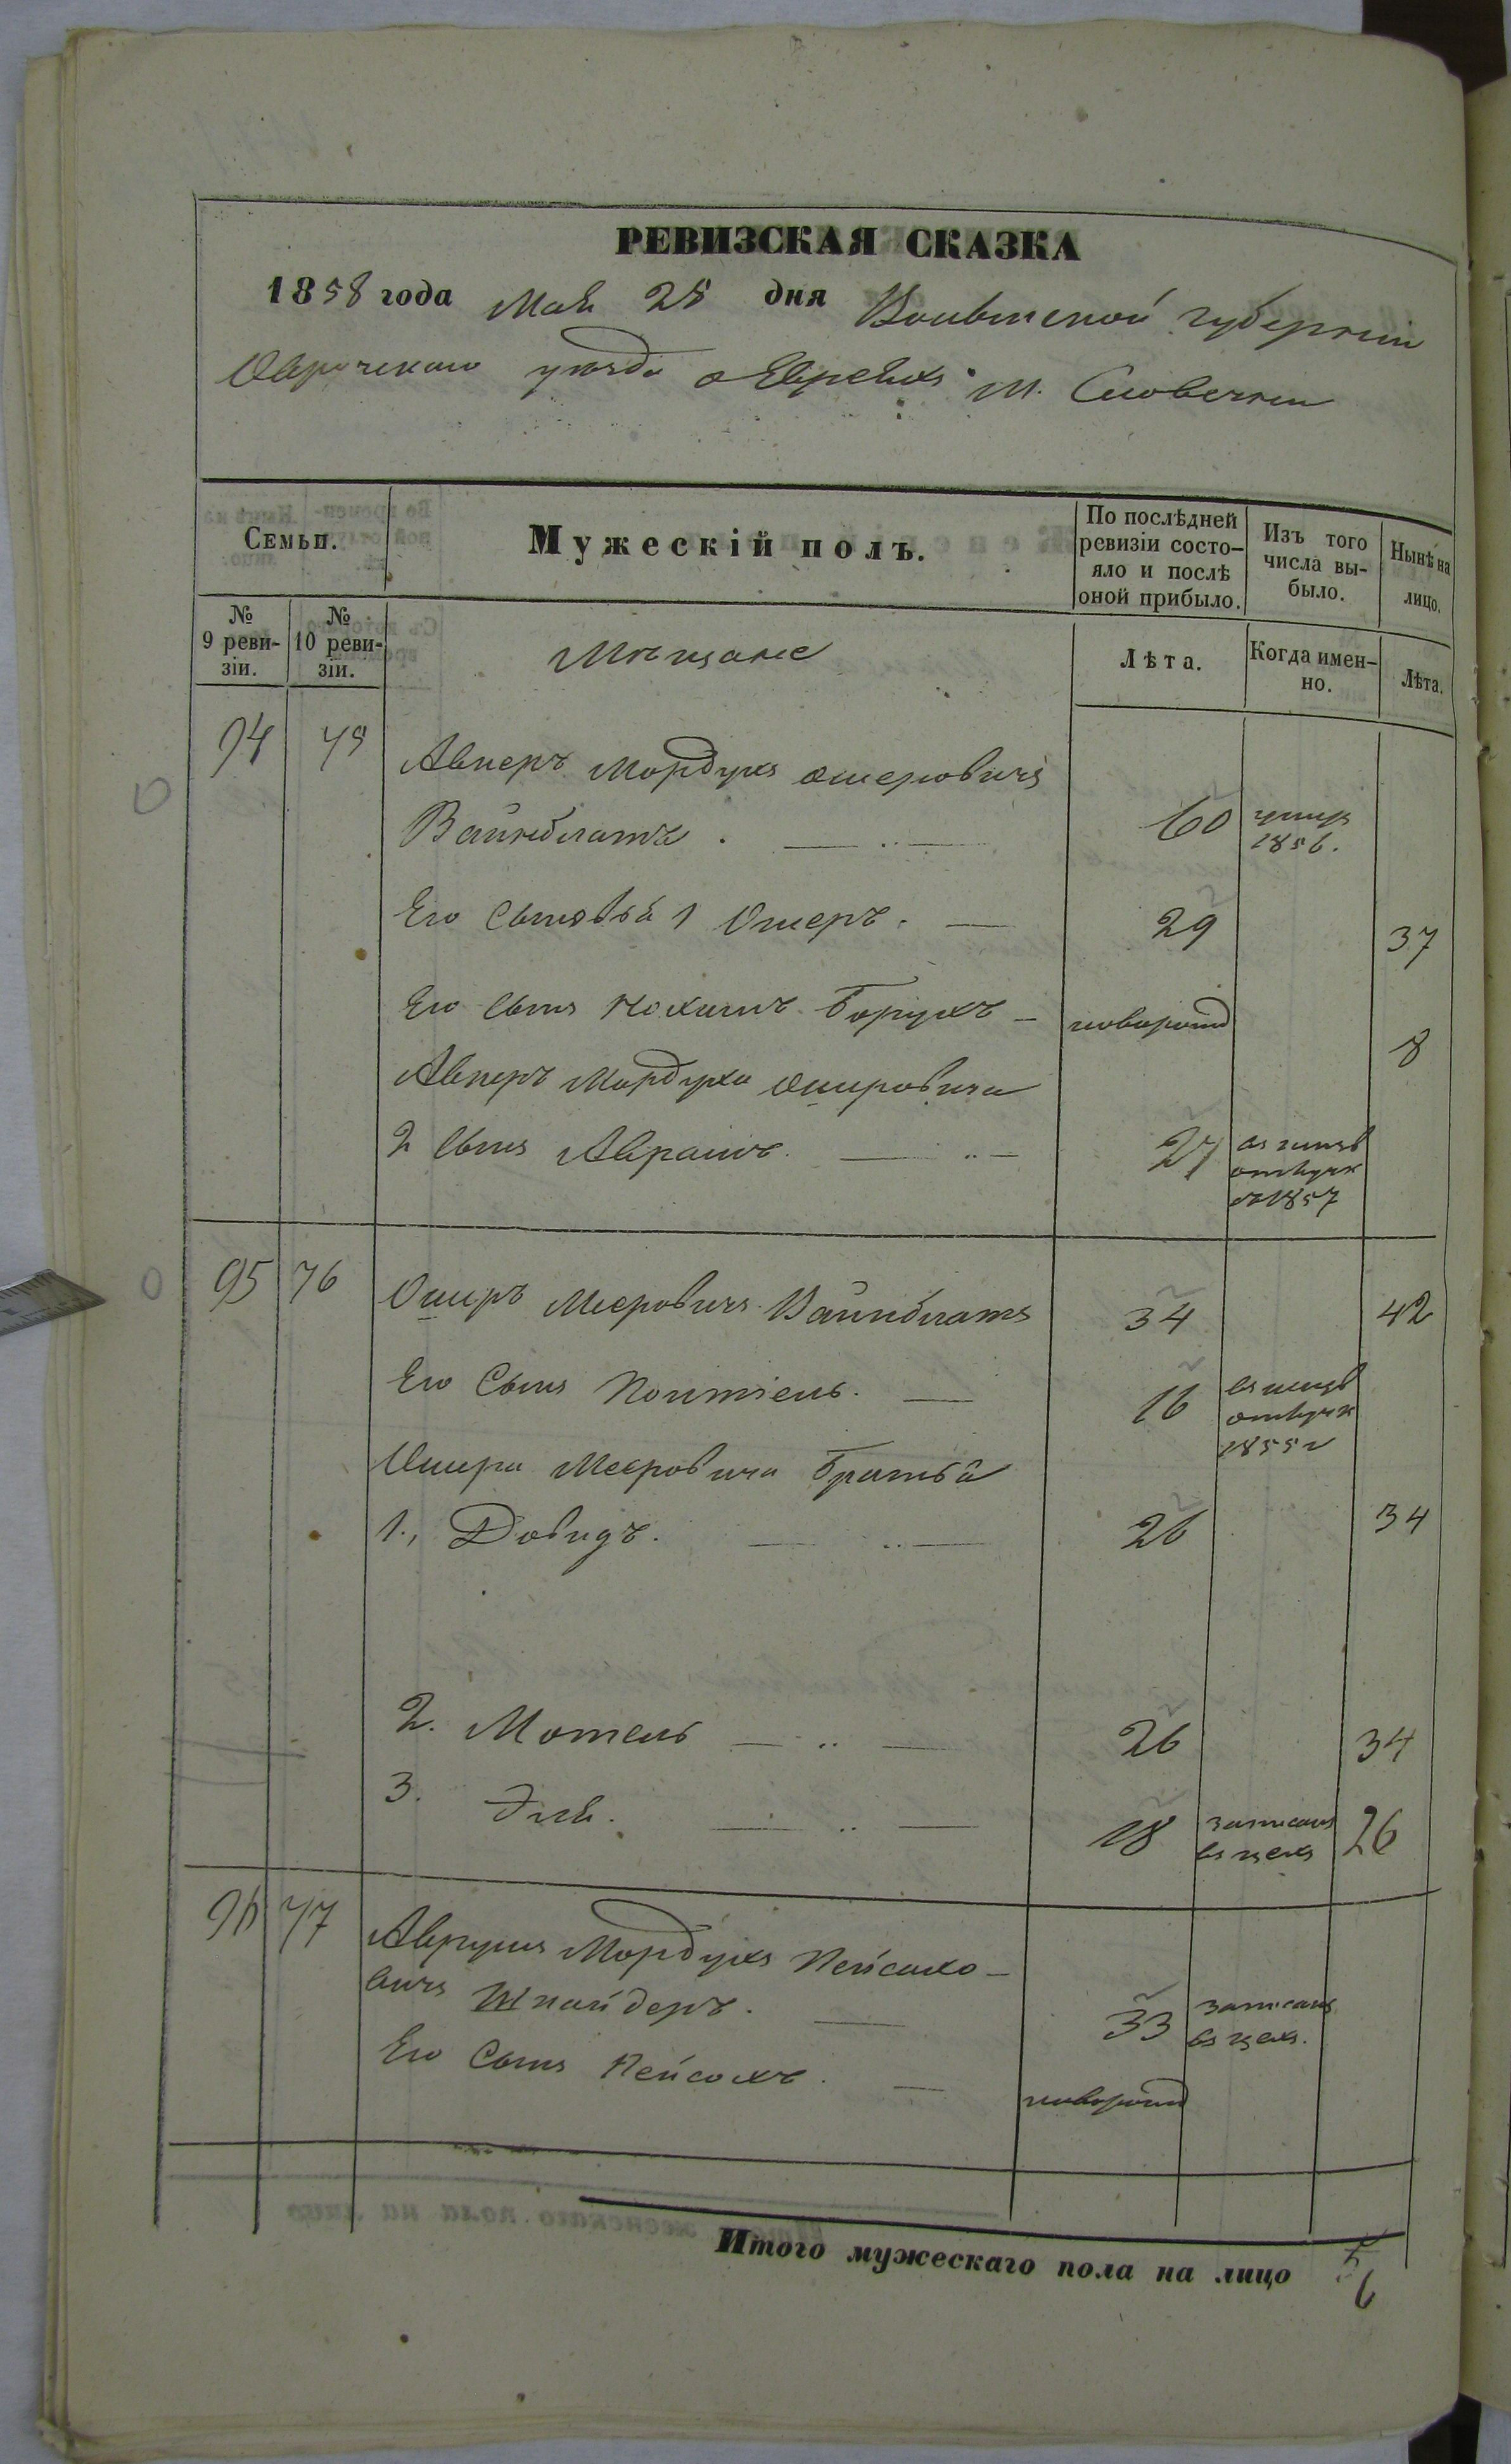 РЕВИЗСКАЯ СКАЗКА
1858 года Мая 25 дня Волынской губернии
Овручского уезда о Евреяхъ м. Словечни
Семьи.
Мужескій полъ.
По послѣдней ревизіи состо-
яло и послѣ
оной прибыло.
Изъ того
числа вы-
было.
Нынѣ на
лицо.
№
9 реви-
зіи.
№
10 реви-
зіи.
Мѣщане
Лѣта.
Когда имен-
но.
Лѣта.
94 75 Авнеръ Мордухъ Ошеровичъ
Вайнблатъ . 60 умер 1856.
Его Сыновья 1 Ошеръ. 29 37
Его Сынъ Нохимъ Борухъ новорожд 8
Авнеръ Мордуха Ошеровича
2 Сынъ Авраамъ. 27 1857
95 76 Ошеръ Мееровичъ Вайнблатъ 34 42
Его Сынъ 16 1855 г
Ошера Мееровича Братья
1., Довидъ. 26 34
2. Мотель 26 34
3. Эля. 18 записанъ въ цехъ 26
96 77 Мордухъ Пейсахо-
вичъ Шнайдеръ. 33 записанъ въ цехъ.
Его Сынъ Пейсахъ. новорожд
Итого мужескаго пола на лицо 6